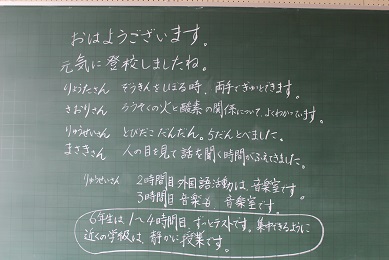 おはようございます。
元気に登校しましたね。
りょうたさん ぞうきんをしぼる時、両手でぎゅっとできます。
さおりさん ろうそくの火と酸素の関係について、よくわかっています。
りゅうせいさん とびだこたんたん。5だんとべました。
まさきさん 人の目を見て話を聞く時間がふえてきました。
りゅうせいさん 2時間目外国語活動は、音楽室です。
3時間目 音楽も 音楽室です。
6年生は1〜4時間目、ずっとテストです。集中できるように
近くの学級は、静かに授業です。